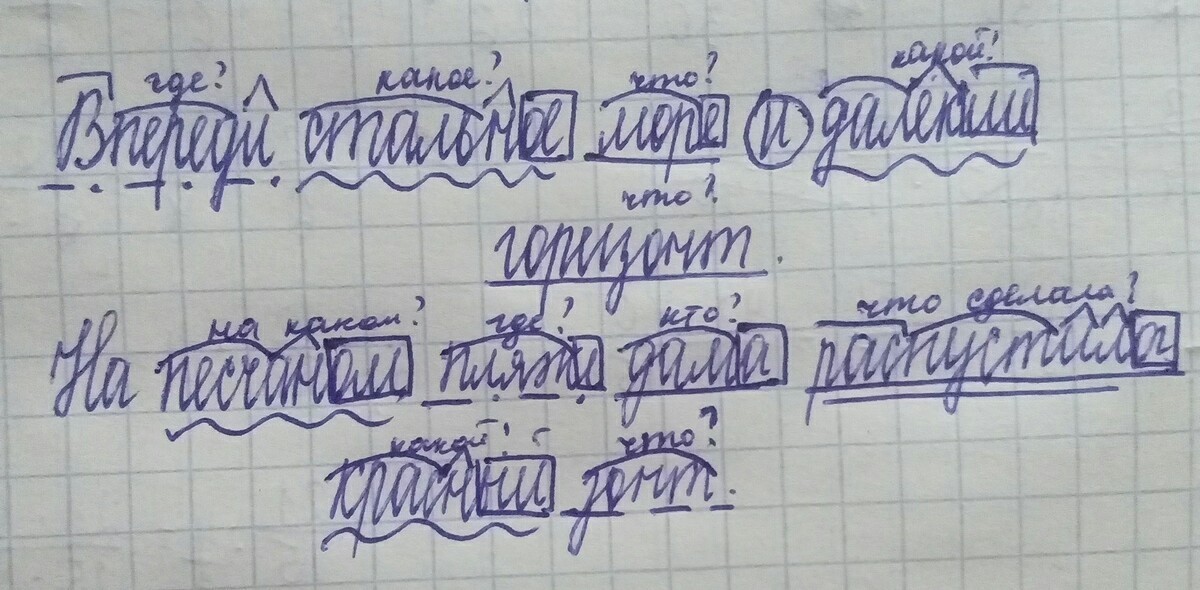 где? какое? что? какой?
Впереди стальное море и далекий
что?
горизонт.
на каком? где? кто? что сделала?
На песчаном пляжи дама распустила
какой? что?
красный зонт.